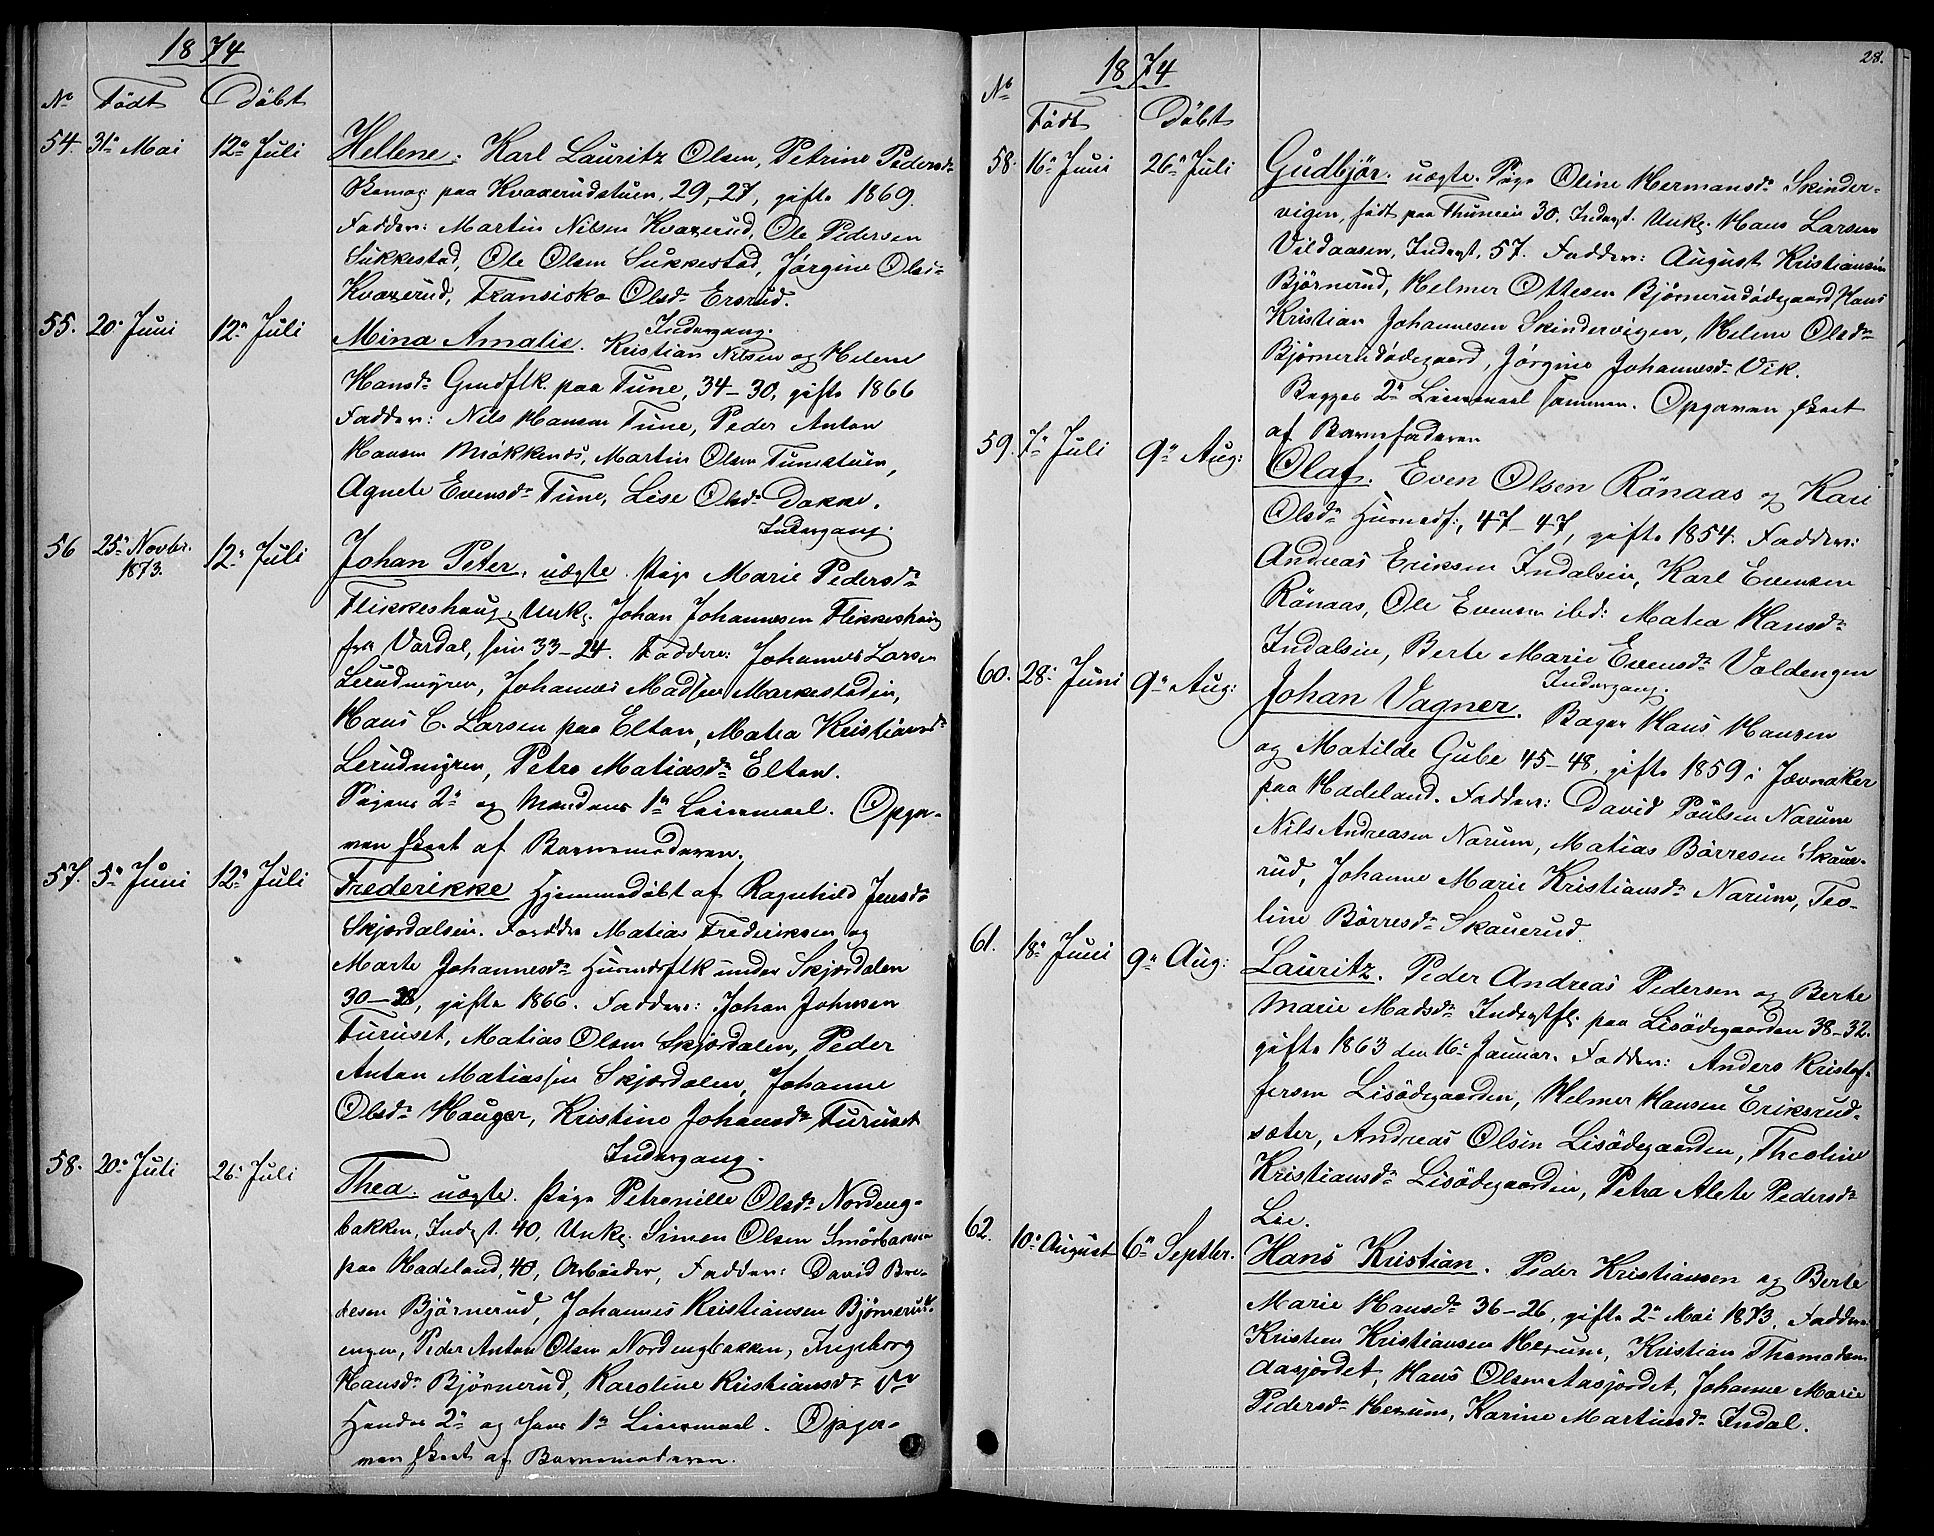 1874
No Födt Döbt
54. 31te Mai 12te Juli Hellene: Karl Lauritz Olsen, Petrine Pedersdr
Skomag paa Kvarerudstuen, 29-27, gifte 1869.
Faddere: Martin Nilsen Kvarerud, Ole Pedersen
Sukkestad, Ole Olsen Sukkestad, Jørgine Olsdr
Kvarerud, Fransiska Olsdr Ersrud.
Indergang.
55. 20. Juni 12te Juli Mina Amalie. Kristian Nilsen og Helene
Hansdr Grndflk. paa Tune, 34-30, gifte 1866
Faddere: Nils Hansen Tune, Peder Anton
Hansen, Martin Olsen Tunestuen,
Agnete Evensdr Tune, Lise Olsdr Dokke.
Indergang.
56 25te Novbr. 1873. 12te Juli Johan Peter, uægte. Pige Marie Pedersdr
Flikkeshaug, Unk. Johan Johannesen Flikkeshaug
fra Vardal, 33-24. Faddere: Johannes Larsen
Lerudmyren, Johannes Madsen Markestaden,
Hans C. Larsen paa Elton, Matea Kristiansdr
Lerudmyren, Petra Matiasdr Elton.
Pigens 2det og Mandens 1te Leiermaal. Opga-
ven skeet af Barnemoderen.
57. 5te Juni 12te Juli Frederikke Hjemmedöbt af Ragnhild Jensdr
Skjærdalsein. Forældre Matias Frederiksen og
Marte Johannesdr Husmdsflk under Skjærdalen
30-28, gifte 1866. Faddere: Johan Johnsen
Furuset, Matias Olsen Skjærdalen, Peder
Anton Matiassen Skjærdalen, Johanne
Olsdr Hauger, Kristine Johansdr Furuset
Indergang.
58. 20. Juli 26. Juli Thea. uægte. Pige Petronille Olsdr Nordeng-
bakken, Indgst. 40, Unk. Simen Olsen Smörbakken
paa Hadeland, 40, Arbeider, Faddere: David Bre-
desen Björnerud, Johannes Kristiansen Björnerud-
engen, Peder Anton Olsen Nordengbakken, Ingeborg
Hansdr Björnerud, Karoline Kristiansdr
Hendes 2det og hans 1te Leiermaal. Opga-
ven skeet af Barnemoderen.
28.
1874
No
Födt Döbt
58. 16te Juni 26te Juli Gudbjør. uægte. Pige Oline Hermansdr Skinder-
vigen, født paa Thuneie 30. Indgst. Unk. Hans Larsen
Vildaasen, Indgst. 57. Faddere: August Kristiansen
Björnerud, Helmer Ottesen Björnerudödegaard, Hans
Kristian Johannesen Skindervigen, Helene Olsdr
Björnerudødegaard, Jørgine Johannesdr Vik.
Begges 2det Leiermaal sammen. Opgaven skeet
af Barnefaderen
59. 7de Juli 9de Aug: Olaf. Even Olsen Rönaas og Kari
Olsdr Husmdf., 47-47, gifte 1854. Faddere:
Andreas Eriksen Indalsein, Karl Evensen
Rönaas, Ole Evensen ibd: Matea Hansdr
Indalsein, Berte Marie Evensdr Voldengen
Indergang.
60. 28. Juni 9de Aug: Johan Vagner. Bager Hans Hansen
og Matilde Gube 45-48, gifte 1859 i Jævnaker
paa Hadeland. Faddere: David Poulsen Narum
Nils Andreasen Narum, Matias Börresen Skaue-
rud, Johanne Marie Kristiansdr Narum, Teo-
line Börresdr Skauerud.
61. 18de Juni 9de Aug: Lauritz. Peder Andreas Pedersen og Berte
Marie Madsdr Indgstf. paa Lisödegaarden 38-32.
gifte 1863 den 16. Januar. Faddere: Anders Kristof-
fersen Lisödegaarden, Helmer Hansen Eriksrud-
sæter, Andreas Olsen Lisödegaarden, Theoline
Kristiansdr Lisödegaarden, Petra Alete Pedersdr
Lie.
62. 10. August 6te Septbr. Hans Kristian. Peder Kristiansen og Berte
Marie Hansdr 36-26, gifte 2den Mai 1873. Faddere:
Kristian Kristiansen Herum, Kristian Thomodsen
Aasjordet, Hans Olsen Aasjordet, Johanne Marie
Pedersdr Herum, Karine Martinsdr Indal.